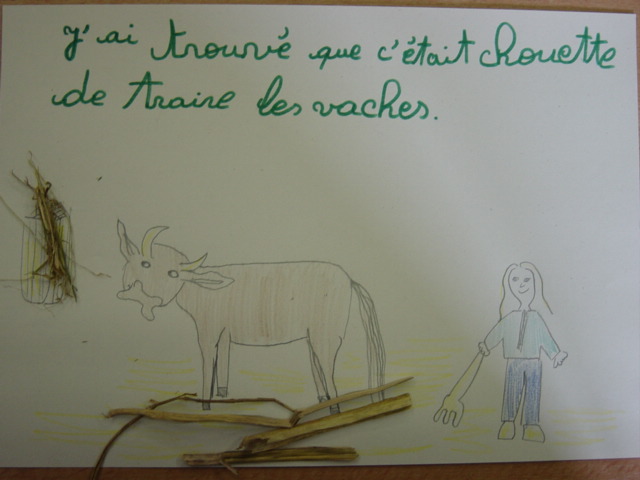 J'ai trouvé que c'était chouette
de traire les vaches.